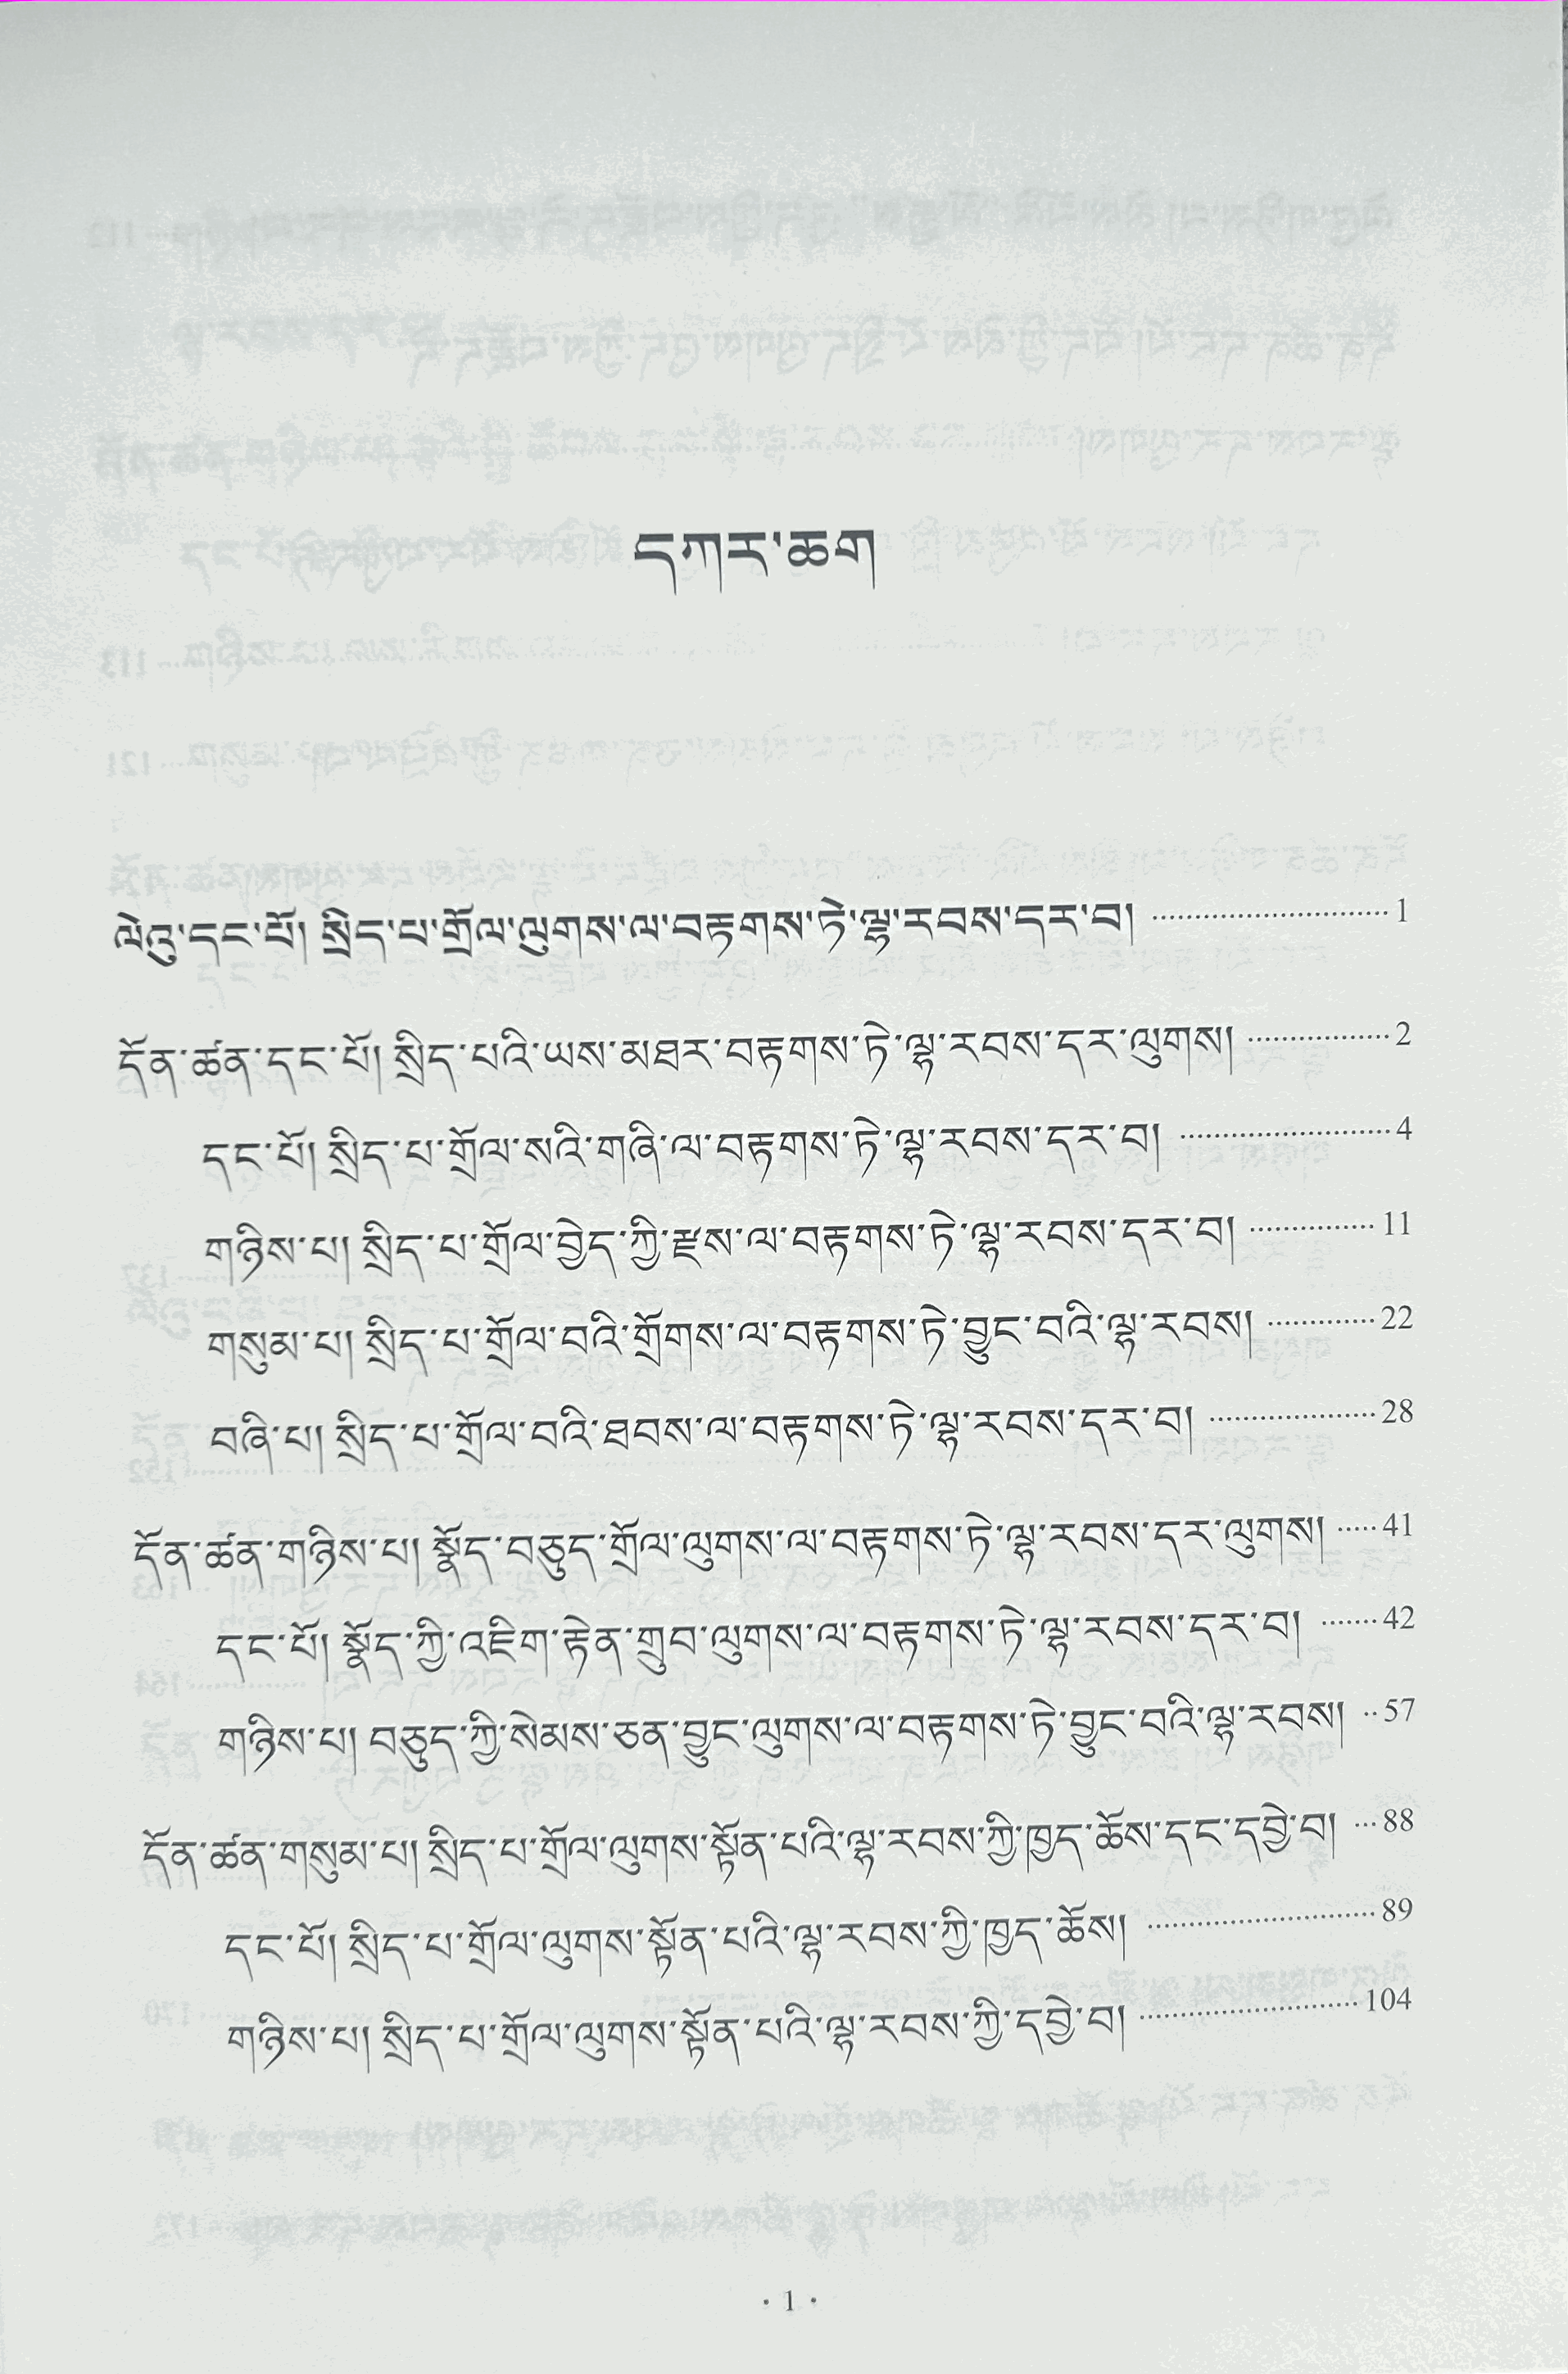 དཀར་ཆག
ལེའུ་དང་པོ། སྲིད་པ་གྲོལ་ལུགས་ལ་བརྟགས་ཏེ་ལྷ་རབས་དར་བ། ………………………1
དོན་ཚན་དང་པོ། སྲིད་པའི་ཡས་མཐར་བརྟགས་ཏེ་ལྷ་རབས་དར་ལུགས། ………………2
དང་པོ། སྲིད་པ་གྲོལ་སའི་གཞི་ལ་བརྟགས་ཏེ་ལྷ་རབས་དར་བ། ……………………4
གཉིས་པ། སྲིད་པ་གྲོལ་བྱེད་ཀྱི་རྫས་ལ་བརྟགས་ཏེ་ལྷ་རབས་དར་བ། ……………11
གསུམ་པ། སྲིད་པ་གྲོལ་བའི་གྲོགས་ལ་བརྟགས་ཏེ་བྱུང་བའི་ལྷ་རབས། …………22
བཞི་པ། སྲིད་པ་གྲོལ་བའི་ཐབས་ལ་བརྟགས་ཏེ་ལྷ་རབས་དར་བ། …………………28
དོན་ཚན་གཉིས་པ། སྣོད་བཅུད་གྲོལ་ལུགས་ལ་བརྟགས་ཏེ་ལྷ་རབས་དར་ལུགས། ……41
དང་པོ། སྣོད་ཀྱི་འཇིག་རྟེན་གྲུབ་ལུགས་ལ་བརྟགས་ཏེ་ལྷ་རབས་དར་བ། ……42
གཉིས་པ། བཅུད་ཀྱི་སེམས་ཅན་བྱུང་ལུགས་ལ་བརྟགས་ཏེ་བྱུང་བའི་ལྷ་རབས། ··57
དོན་ཚན་གསུམ་པ། སྲིད་པ་གྲོལ་ལུགས་སྟོན་པའི་ལྷ་རབས་ཀྱི་ཁྱད་ཆོས་དང་དབྱེ་བ། …88
དང་པོ། སྲིད་པ་གྲོལ་ལུགས་སྟོན་པའི་ལྷ་རབས་ཀྱི་ཁྱད་ཆོས། ………………………89
གཉིས་པ། སྲིད་པ་གྲོལ་ལུགས་སྟོན་པའི་ལྷ་རབས་ཀྱི་དབྱེ་བ། ………………………104
· 1 ·